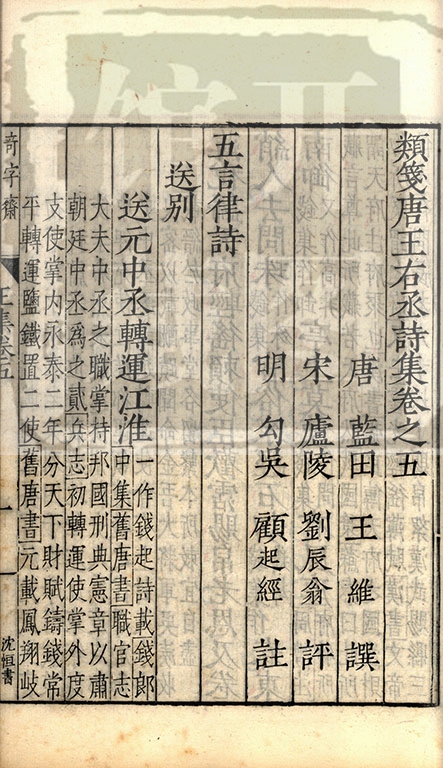 類箋唐王右丞詩集卷之五
唐 藍田 王維 譔
宋 廬陵 劉辰翁 評
明 勾吳 顧起經 註
五言律詩
送別
送元中丞轉運江淮
一作錢起詩載錢郎
中集舊唐書職官志
大夫中丞之職掌持邦國刑典憲章以肅
朝廷中丞為之貳兵志初轉運使掌外度
支使掌內永泰二年分天下財賦鑄錢常
平轉運鹽鐵置二使舊唐書元載鳳翔岐
奇字齋
王集卷五
一
沈恒書